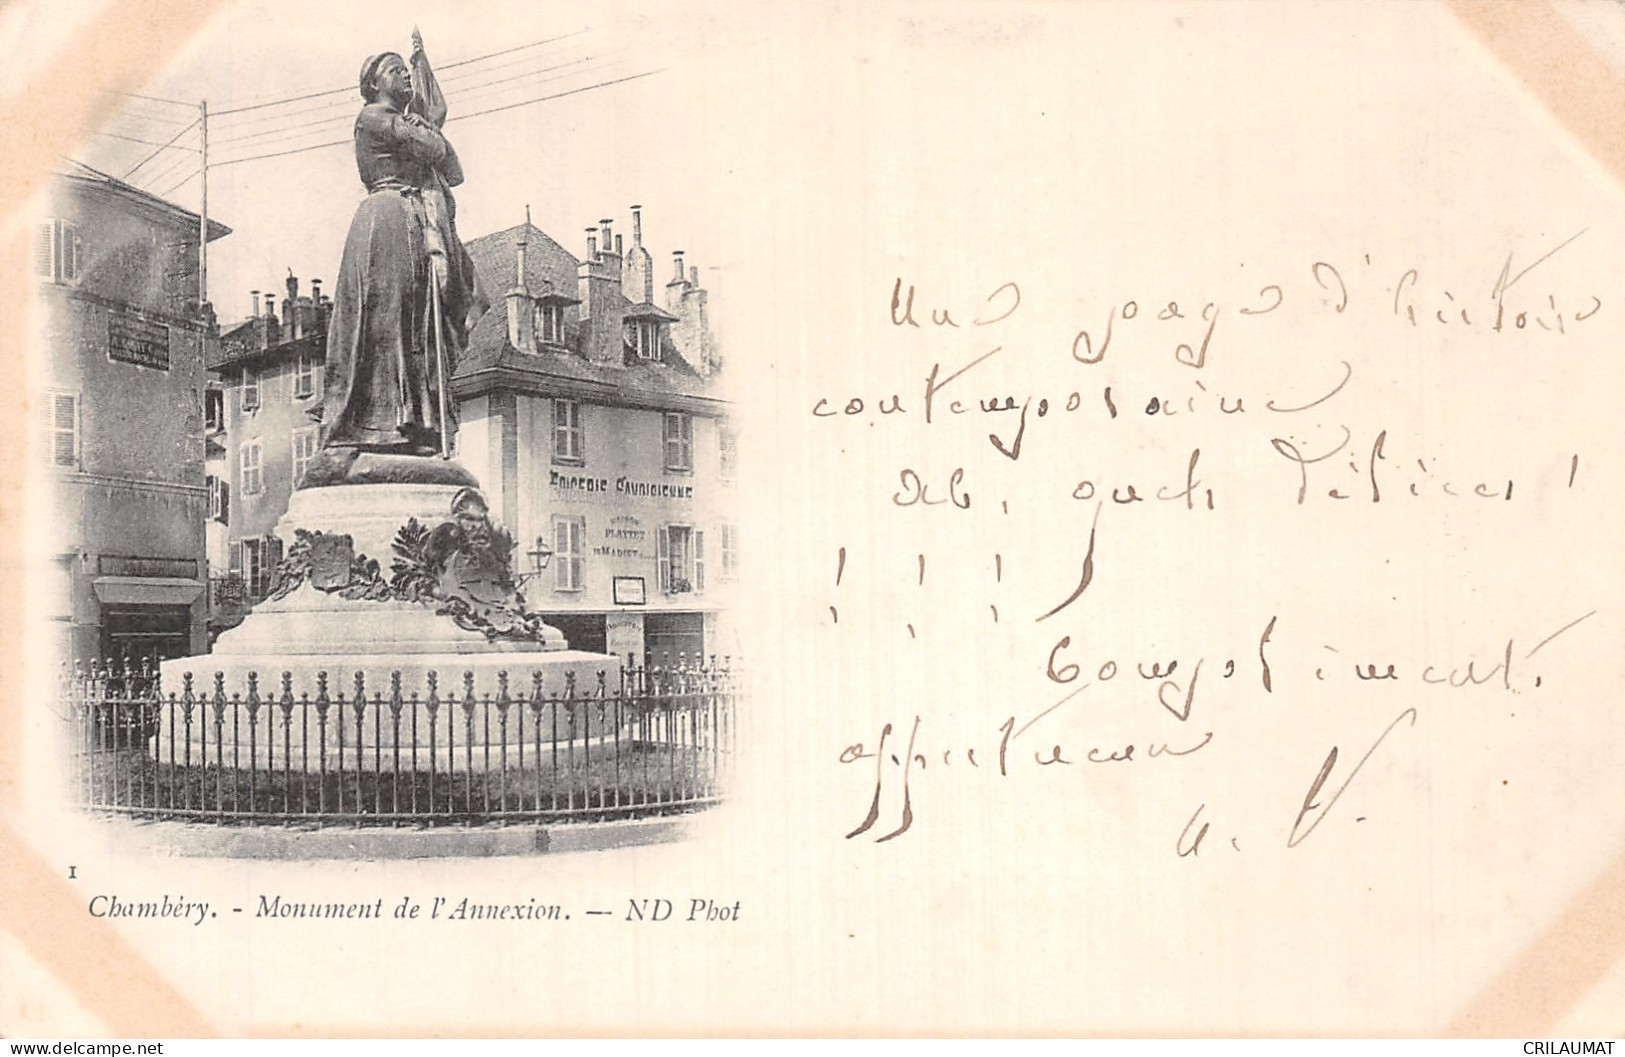 EPICERIE SAVOISIENNE
MAISON
PLATTET
Une page d'histoire
contemporaine
ah, quels délices !
! ! !
Compliments.
affectueux
V.
1
Chambéry. - Monument de l'Annexion. — ND Phot
www.delcampe.net
CRILAUMAT